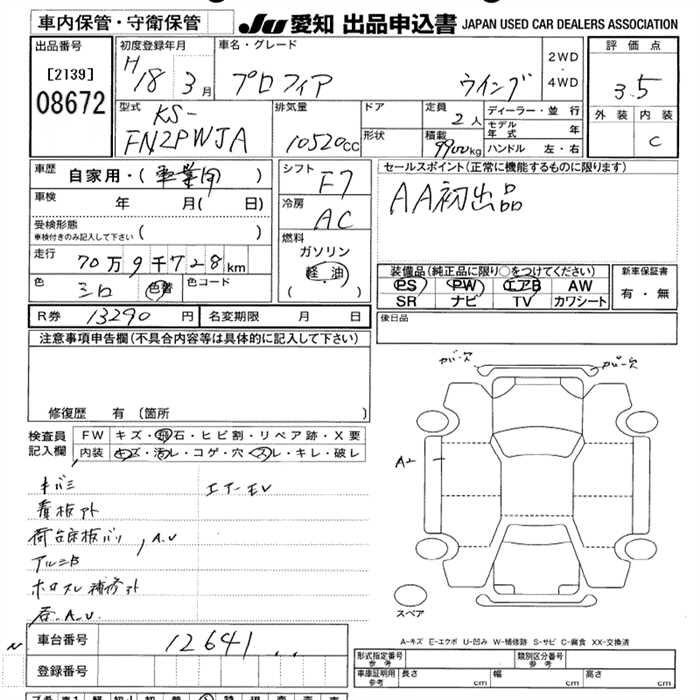 車内保管・守衛保管
JU 愛知 出品申込書 JAPAN USED CAR DEALERS ASSOCIATION
出品番号
[2139]
08672
初度登録年月
H18 3月
車名・グレード
プロフィア ウイング
2WD
・
4WD
評価点
3.5
外装 内装
C
型式
KS-
FN2PWJA
排気量
10520cc
ドア
形状
定員
2人
積載
9900kg
ディーラー・並行
モデル年式 年
ハンドル 左・右
車歴
自家用・( 事業用 )
車検
年 月( 日)
受検形態
車検付きのみ記入して下さい ( )
走行
70万9千728km
色
シロ
色替
色コード
シフト
F7
冷房
AC
燃料
ガソリン
軽油
( ・ )
セールスポイント(正常に機能するものに限ります)
AA初出品
装備品(純正品に限り○をつけてください)
PS PW エアB AW
SR ナビ TV カワシート
新車保証書
有・無
R券 13290円
名変期限 月 日
後日品
注意事項申告欄(不具合内容等は具体的に記入して下さい)
修復歴 有(箇所 )
検査員
記入欄
FW キズ・飛石・ヒビ割・リペア跡・X要
内装 キズ・汚レ・コゲ・穴・スレ・キレ・破レ
キバミ
エアーEV
看板アト
アルミB
カバー欠
カバー欠
A2
スペア
A-キズ E-エクボ U-凹み W-補修跡 S-サビ C-腐食 XX-交換済
車台番号
12641
登録番号
型式指定番号
参考
類別区分番号
参考
車庫証明用
参考
長さ cm
幅 cm
高さ cm